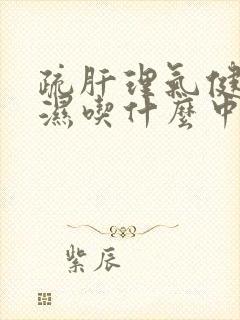 疏肝理氣健
濕喫什麼中
紫辰